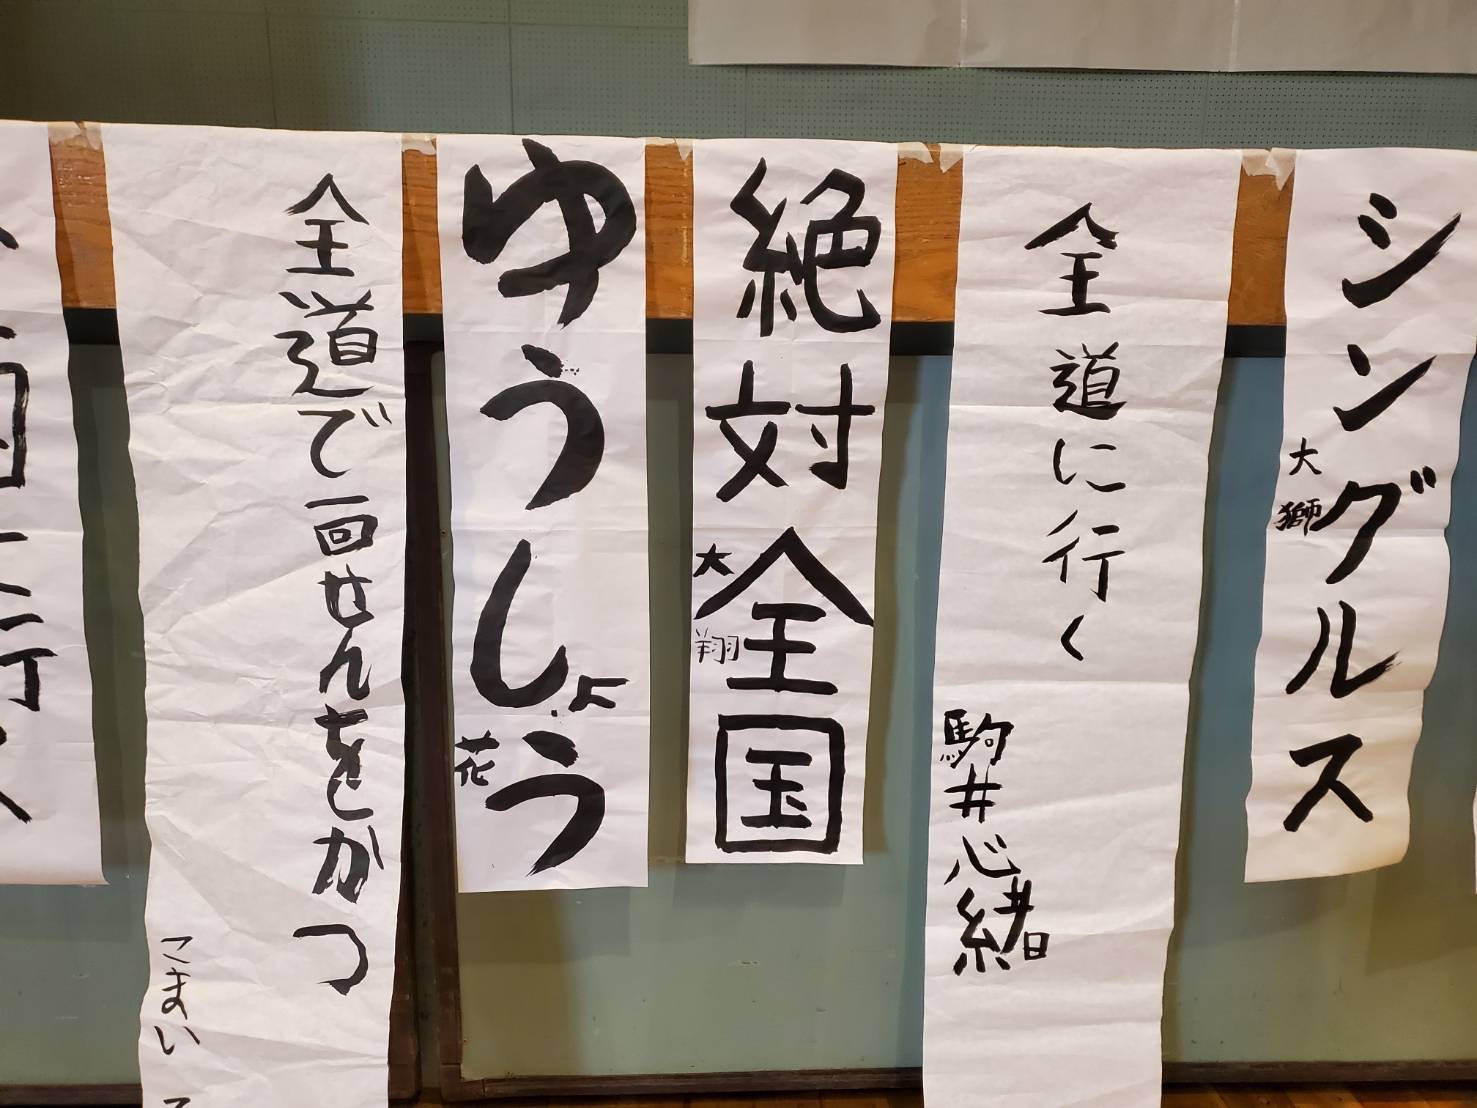 シングルス
大獅
全道に行く
駒井心緒
絶対全国
大翔
ゆうしょう
花
全道で一回せんをかつ
こまい
に行く